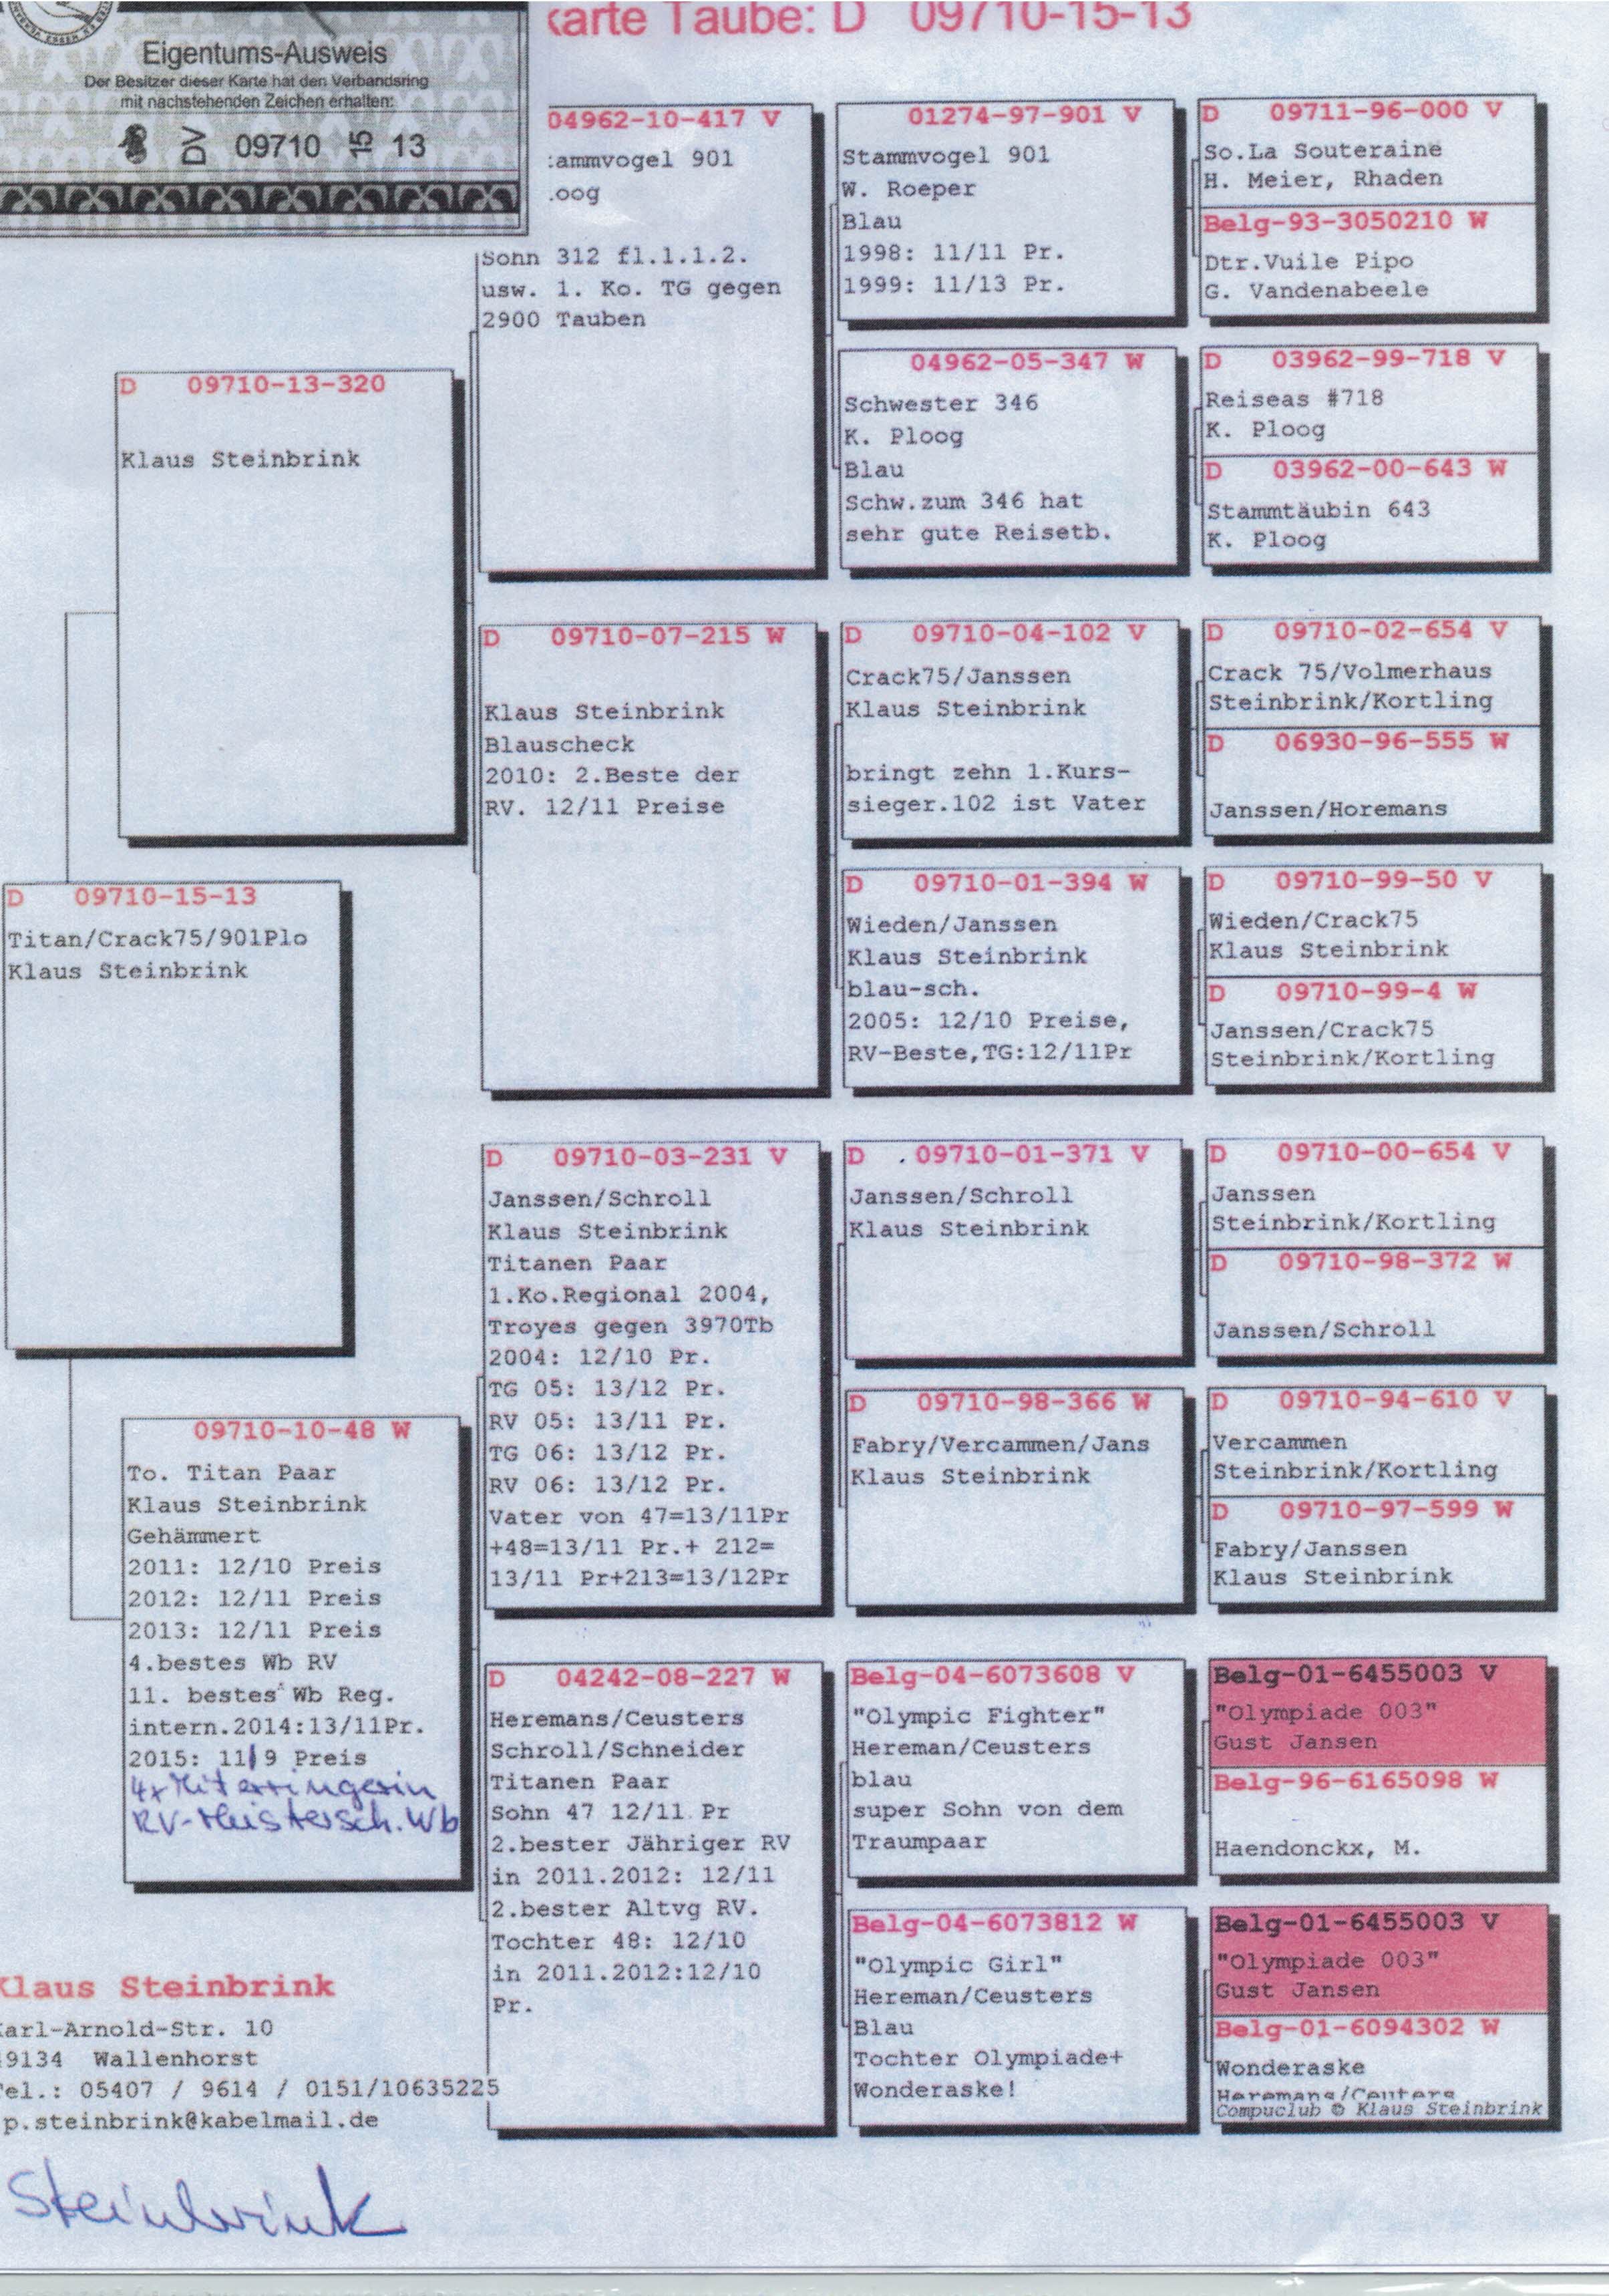 Eigentums-Ausweis
Der Besitzer dieser Karte hat den Verbandsring
mit nachstehenden Zeichen erhalten:
DV 09710 15 13
karte Taube: D 09710-15-13
D 09710-15-13
Titan/Crack75/901Plo
Klaus Steinbrink
D 09710-13-320
Klaus Steinbrink
09710-10-48 W
To. Titan Paar
Klaus Steinbrink
Gehämmert
2011: 12/10 Preis
2012: 12/11 Preis
2013: 12/11 Preis
4.bestes Wb RV
11. bestes Wb Reg.
intern.2014:13/11Pr.
2015: 11/9 Preis
4x Miterringerin
RV-Meistersch. Wb
04962-10-417 V
ammvogel 901
oog
Sohn 312 fl.1.1.2.
usw. 1. Ko. TG gegen
2900 Tauben
D 09710-07-215 W
Klaus Steinbrink
Blauscheck
2010: 2.Beste der
RV. 12/11 Preise
D 09710-03-231 V
Janssen/Schroll
Klaus Steinbrink
Titanen Paar
1.Ko.Regional 2004,
Troyes gegen 3970Tb
2004: 12/10 Pr.
TG 05: 13/12 Pr.
RV 05: 13/11 Pr.
TG 06: 13/12 Pr.
RV 06: 13/12 Pr.
Vater von 47=13/11Pr
+48=13/11 Pr.+ 212=
13/11 Pr+213=13/12Pr
D 04242-08-227 W
Heremans/Ceusters
Schroll/Schneider
Titanen Paar
Sohn 47 12/11 Pr
2.bester Jähriger RV
in 2011.2012: 12/11
2.bester Altvg RV.
Tochter 48: 12/10
in 2011.2012:12/10
Pr.
01274-97-901 V
Stammvogel 901
W. Roeper
Blau
1998: 11/11 Pr.
1999: 11/13 Pr.
04962-05-347 W
Schwester 346
K. Ploog
Blau
Schw.zum 346 hat
sehr gute Reisetb.
D 09710-04-102 V
Crack75/Janssen
Klaus Steinbrink
bringt zehn 1.Kurs-
sieger.102 ist Vater
D 09710-01-394 W
Wieden/Janssen
Klaus Steinbrink
blau-sch.
2005: 12/10 Preise,
RV-Beste,TG:12/11Pr
D 09710-01-371 V
Janssen/Schroll
Klaus Steinbrink
D 09710-98-366 W
Fabry/Vercammen/Jans
Klaus Steinbrink
Belg-04-6073608 V
"Olympic Fighter"
Hereman/Ceusters
blau
super Sohn von dem
Traumpaar
Belg-04-6073812 W
"Olympic Girl"
Hereman/Ceusters
Blau
Tochter Olympiade+
Wonderaske!
D 09711-96-000 V
So.La Souteraine
H. Meier, Rhaden
Belg-93-3050210 W
Dtr.Vuile Pipo
G. Vandenabeele
D 03962-99-718 V
Reiseas #718
K. Ploog
D 03962-00-643 W
Stammtäubin 643
K. Ploog
D 09710-02-654 V
Crack 75/Volmerhaus
Steinbrink/Kortling
D 06930-96-555 W
Janssen/Horemans
D 09710-99-50 V
Wieden/Crack75
Klaus Steinbrink
D 09710-99-4 W
Janssen/Crack75
Steinbrink/Kortling
D 09710-00-654 V
Janssen
Steinbrink/Kortling
D 09710-98-372 W
Janssen/Schroll
D 09710-94-610 V
Vercammen
Steinbrink/Kortling
D 09710-97-599 W
Fabry/Janssen
Klaus Steinbrink
Belg-01-6455003 V
"Olympiade 003"
Gust Jansen
Belg-96-6165098 W
Haendonckx, M.
Belg-01-6455003 V
"Olympiade 003"
Gust Jansen
Belg-01-6094302 W
Wonderaske
Heremans/Ceuters
Compuclub © Klaus Steinbrink
Klaus Steinbrink
Karl-Arnold-Str. 10
49134 Wallenhorst
Tel.: 05407 / 9614 / 0151/10635225
p.steinbrink@kabelmail.de
Steinbrink